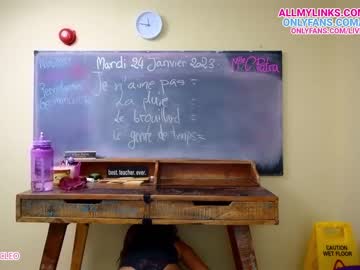 ALLMYLINKS.COM/
ONLYFANS.COM/
ONLYFANS.COM/LIV
Mardi 24 Janvier 2023
Mme C. Patra
Je n'aime pas :
La pluie
Le brouillard
Le genre de temps
best. teacher. ever.
CAUTION
WET FLOOR
CLEO